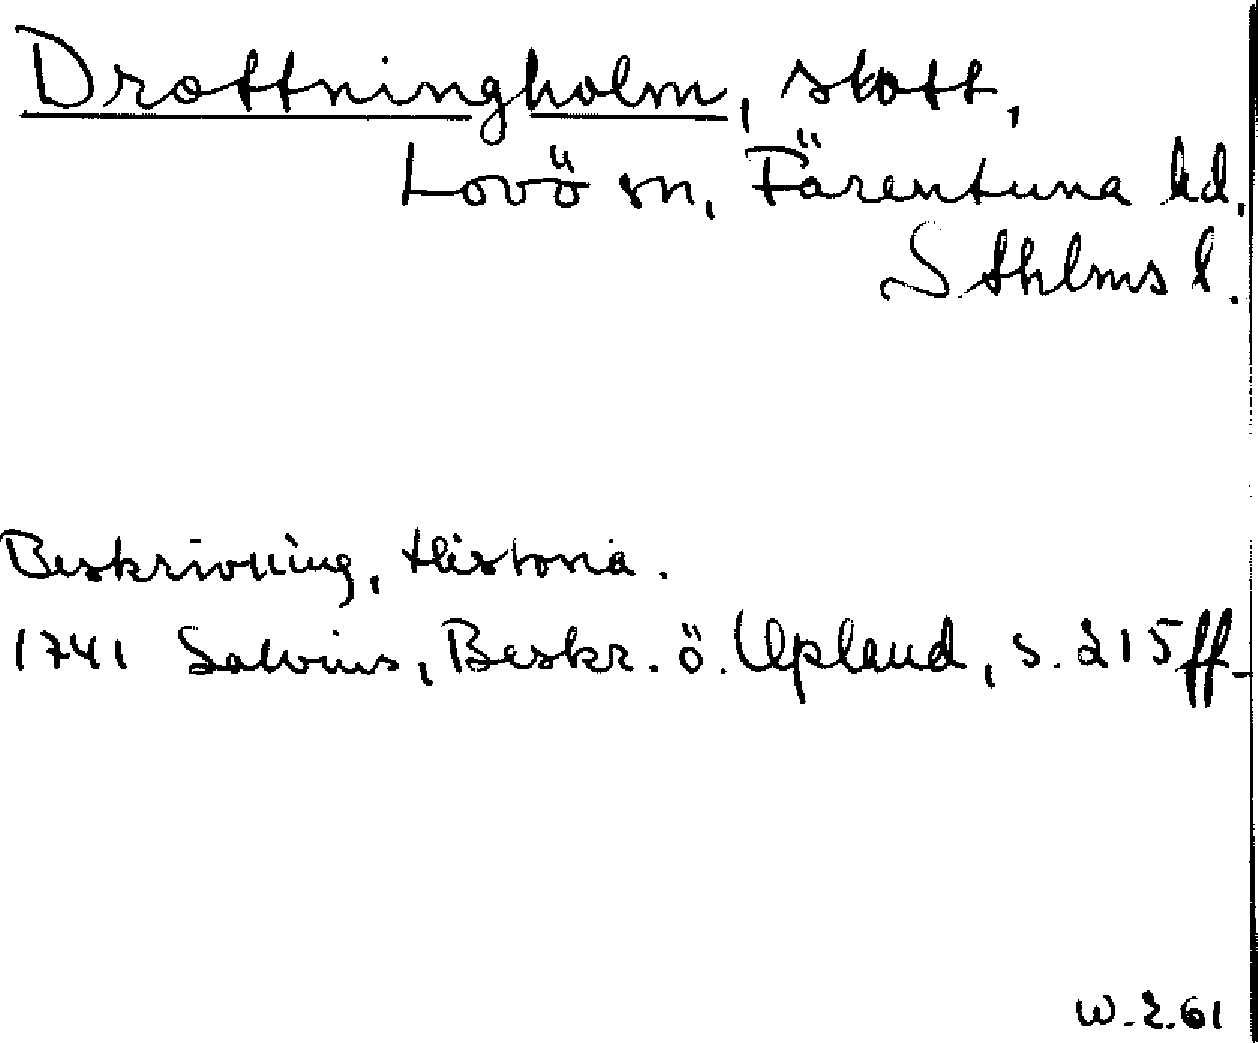 Drottningholm, slott,
Lovö sn, Färentuna hd,
Sthlms l.
Beskrivning, Historia.
1741 Salvius, Beskr. ö. Upland, s. 215 ff.
W. 2.61